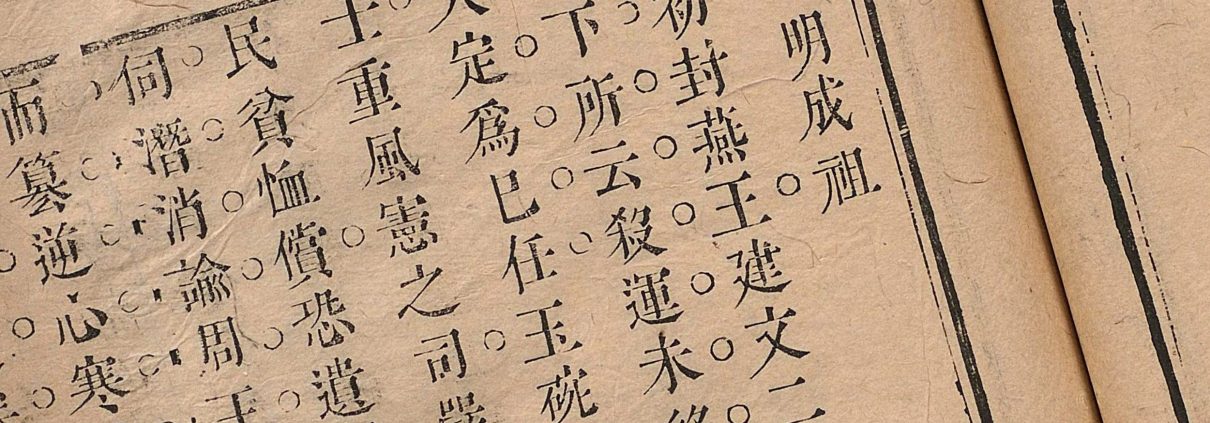 明成祖
初封燕王建文二
下所云殺運未終
定爲已任玉碗
士重風憲之司嚴
民貧恤償恐遺
伺潛消諭周王
而篡逆心寒